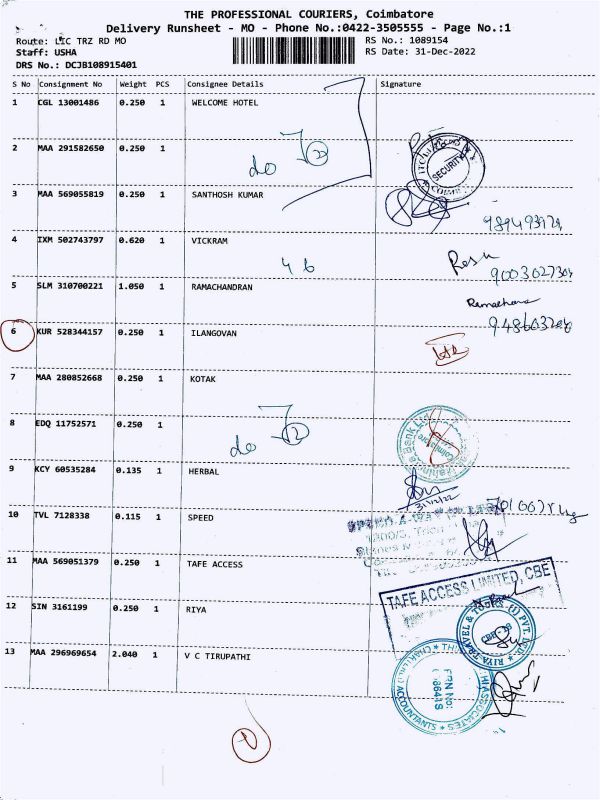 THE PROFESSIONAL COURIERS, Coimbatore
Delivery Runsheet - MO - Phone No.:0422-3505555 - Page No.:1
Route: LIC TRZ RD MO
RS No.: 1089154
Staff: USHA
RS Date: 31-Dec-2022
DRS No.: DCJB108915401
S No Consignment No Weight PCS Consignee Details Signature
1 CGL 13001486 0.250 1 WELCOME HOTEL
2 MAA 291582650 0.250 1
do
SECURITY
3 MAA 569055819 0.250 1 SANTHOSH KUMAR
4 IXM 502743797 0.620 1 VICKRAM
46
9003027304
5 SLM 310700221 1.050 1 RAMACHANDRAN
Ramachandran
6 KUR 528344157 0.250 1 ILANGOVAN
7 MAA 280852668 0.250 1 KOTAK
8 EDQ 11752571 0.250 1
do 12
9 KCY 60535284 0.135 1 HERBAL
31/12/22
10 TVL 7128338 0.115 1 SPEED
11 MAA 569051379 0.250 1 TAFE ACCESS
TAFE ACCESS LIMITED, CBE
12 SIN 3161199 0.250 1 RIYA
RIYA TRAVEL & TOURS (I) PVT. LTD.
13 MAA 296969654 2.040 1 V C TIRUPATHI
ASSOCIATES
FRN No:
CHARTERED ACCOUNTANTS